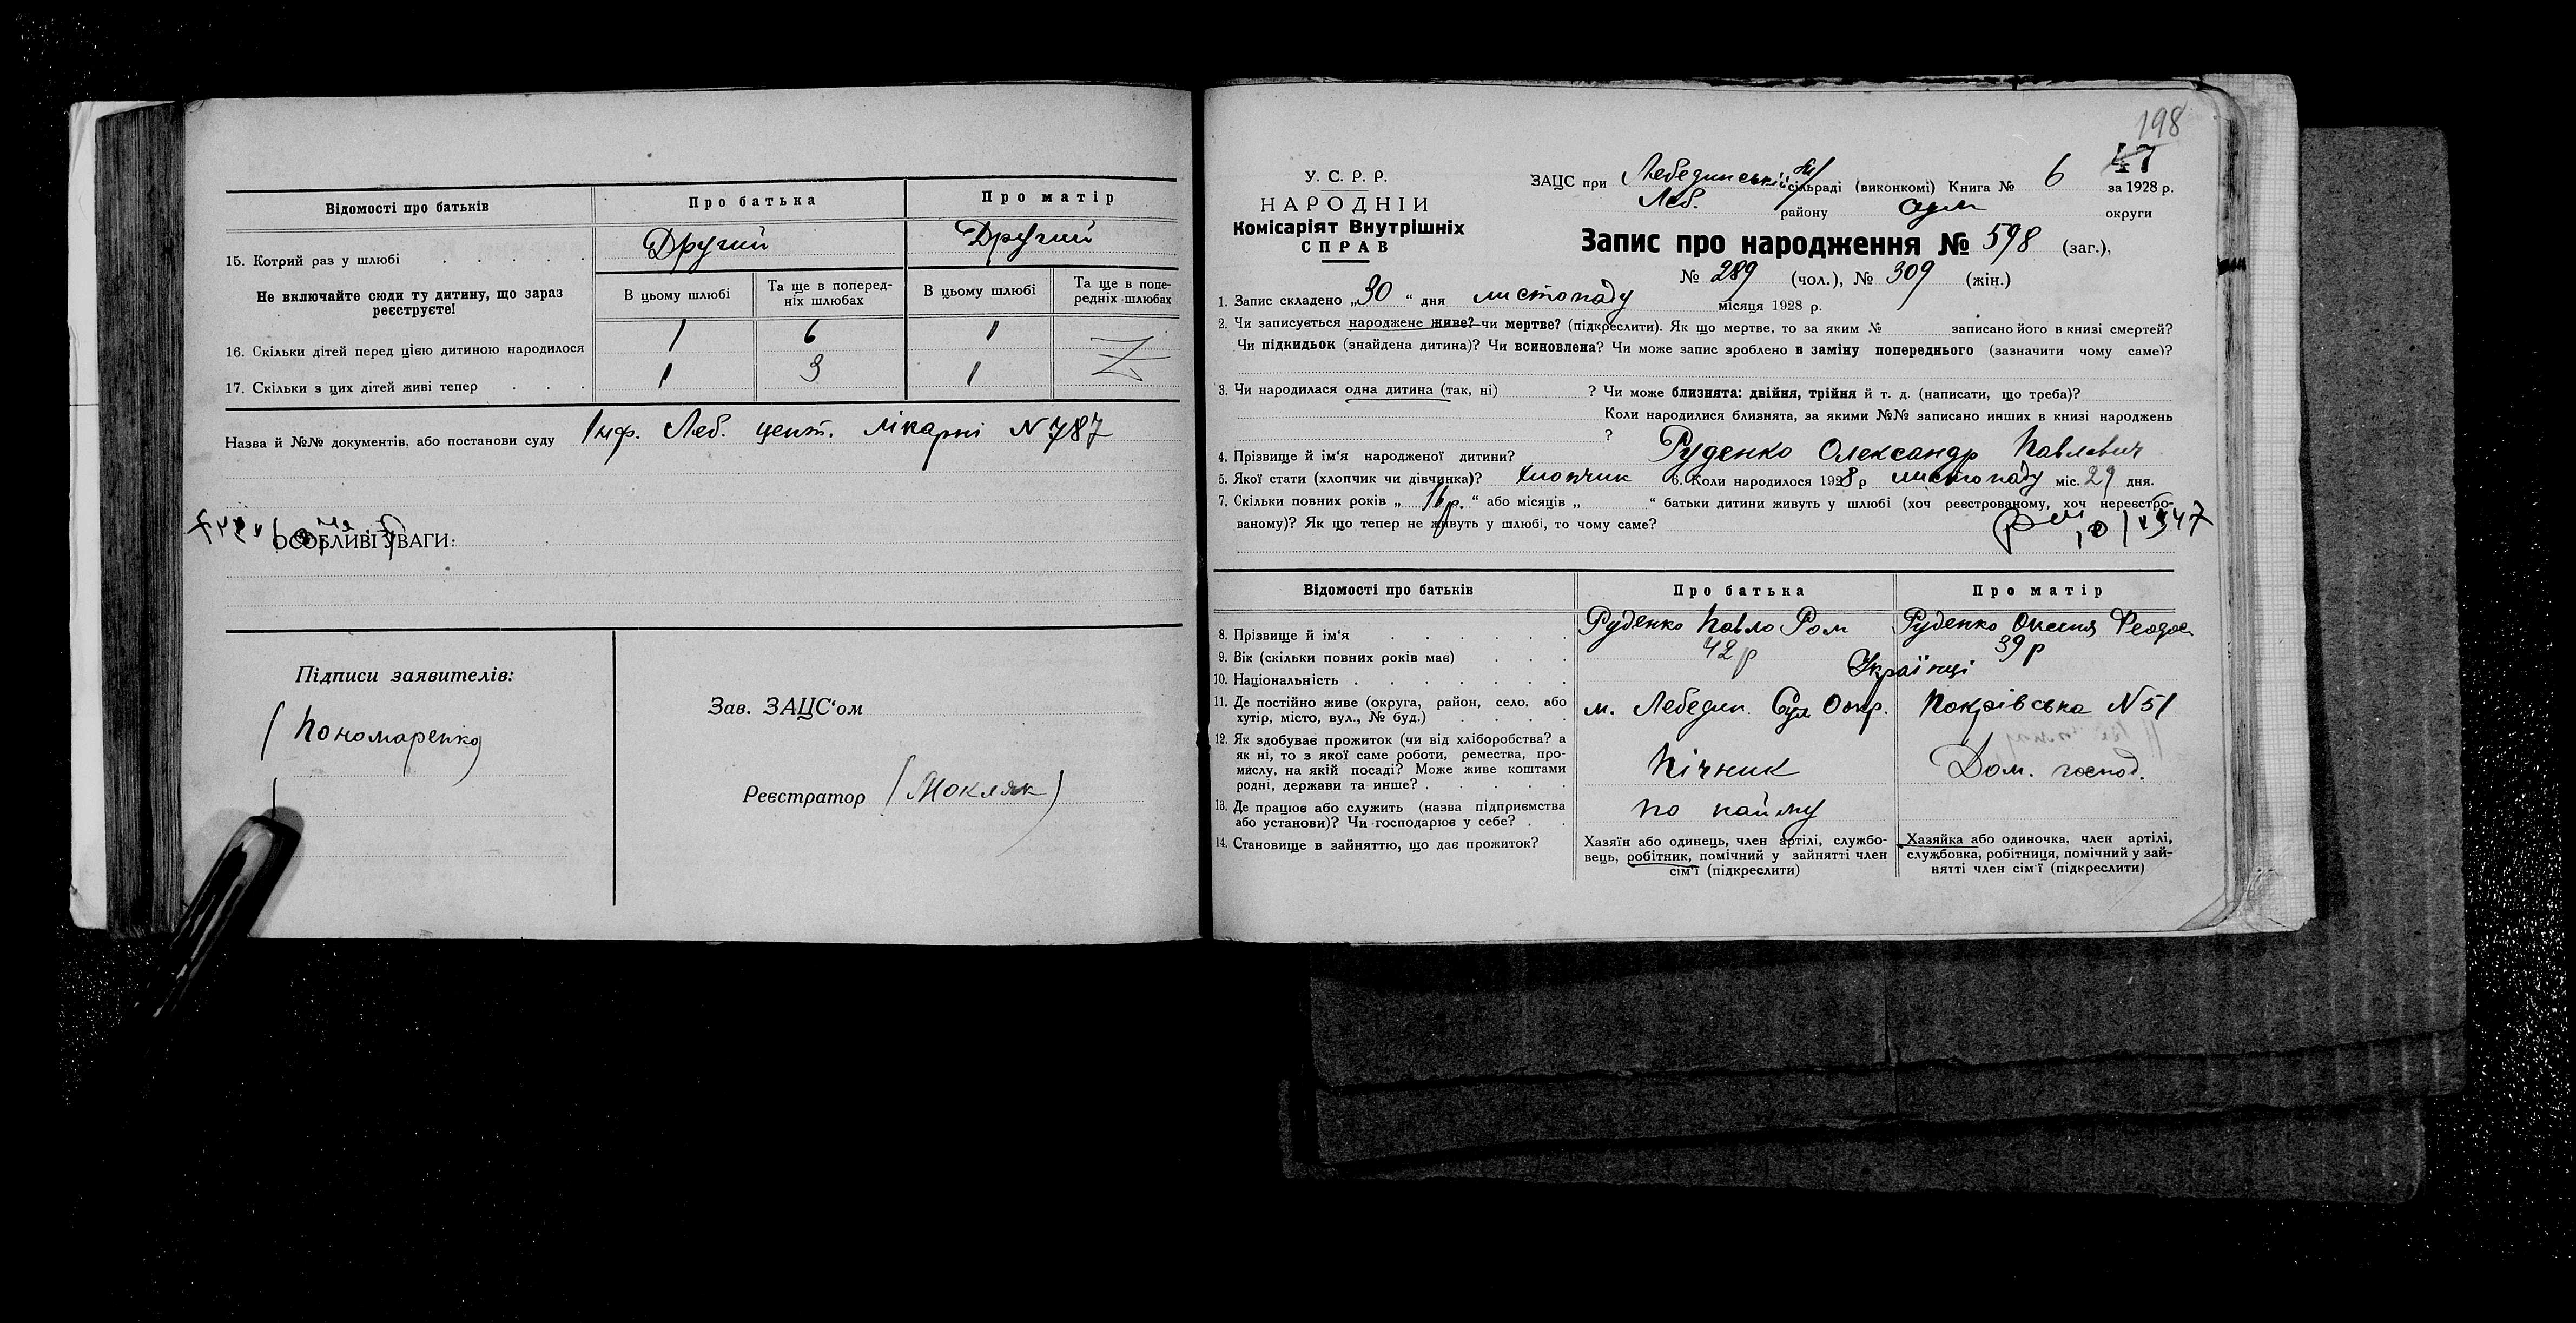 Відомості про батьків
Про батька
Про матір
15. Котрий раз у шлюбі
Другий
Другий
Не включайте сюди ту дитину, що зараз реєструєте!
В цьому шлюбі
Та ще в поперед-
ніх шлюбах
В цьому шлюбі
Та ще в попе-
редніх шлюбах
16. Скільки дітей перед цією дитиною народилося
1 6 1
17. Скільки з цих дітей живі тепер
1 3 1
Назва й №№ документів, або постанови суду Леб. цент. лікарні N 787
ОСОБЛИВІ УВАГИ:
Підписи заявителів:
(Пономаренко)
Зав. ЗАЦС'ом
Реєстратор (Мокляк)
198
47
У. С. Р. Р.
НАРОДНІЙ
Комісаріят Внутрішніх
СПРАВ
ЗАЦС при Лебединській сільраді (виконкомі) Книга № 6 за 1928 р.
Леб. району Сум округи
Запис про народження № 598 (заг.),
№ 289 (чол.), № 309 (жін.)
1. Запис складено „30“ дня листопаду місяця 1928 р.
2. Чи записується народжене живе? чи мертве? (підкреслити). Як що мертве, то за яким № записано його в книзі смертей?
Чи підкидьок (знайдена дитина)? Чи всиновлена? Чи може запис зроблено в заміну попереднього (зазначити чому саме)?
3. Чи народилася одна дитина (так, ні) ? Чи може близнята: двійня, трійня й т. д. (написати, що треба)?
Коли народилися близнята, за якими №№ записано инших в книзі народжень
?
4. Прізвище й ім'я народженої дитини? Руденко Олександр Павлович
5. Якої стати (хлопчик чи дівчинка)? хлопчик 6. Коли народилося 1928 р листопаду міс. 29 дня.
7. Скільки повних років „ “ або місяців „ “ батьки дитини живуть у шлюбі (хоч реєстрованому, хоч нереєстро-
ваному)? Як що тепер не живуть у шлюбі, то чому саме?
Відомості про батьків
Про батька
Про матір
8. Прізвище й ім'я
Руденко Павло Ром
Руденко Феодос.
9. Вік (скільки повних років має)
42 р
39 р
10. Національність
Українці
11. Де постійно живе (округа, район, село, або
хутір, місто, вул., № буд.)
м. Лебедин. Сум Окр. Покрівська N 51
12. Як здобуває прожиток (чи від хліборобства? а
як ні, то з якої саме роботи, ремества, про-
мислу, на якій посаді? Може живе коштами
родні, держави та инше?
Пічник
Дом. господ.
13. Де працює або служить (назва підприємства
або установи)? Чи господарює у себе?
по найму
14. Становище в зайняттю, що дає прожиток?
Хазяїн або одинець, член артілі, службо-
вець, робітник, помічний у зайнятті член
сім'ї (підкреслити)
Хазяйка або одиночка, член артілі,
службовка, робітниця, помічний у зай-
нятті член сім'ї (підкреслити)